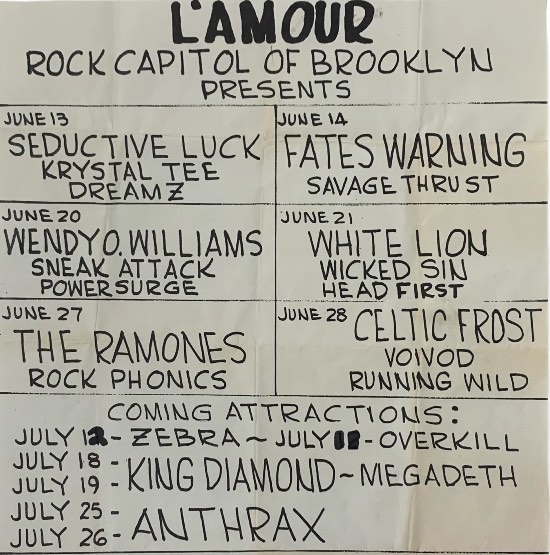 L'AMOUR
ROCK CAPITOL OF BROOKLYN
PRESENTS
JUNE 13
SEDUCTIVE LUCK
KRYSTAL TEE
DREAMZ
JUNE 14
FATES WARNING
SAVAGE THRUST
JUNE 20
WENDY O. WILLIAMS
SNEAK ATTACK
POWERSURGE
JUNE 21
WHITE LION
WICKED SIN
HEAD FIRST
JUNE 27
THE RAMONES
ROCK PHONICS
JUNE 28
CELTIC FROST
VOIVOD
RUNNING WILD
COMING ATTRACTIONS:
JULY 12 - ZEBRA ~ JULY - OVERKILL
JULY 18 -
JULY 19 - KING DIAMOND ~ MEGADETH
JULY 25 -
JULY 26 - ANTHRAX